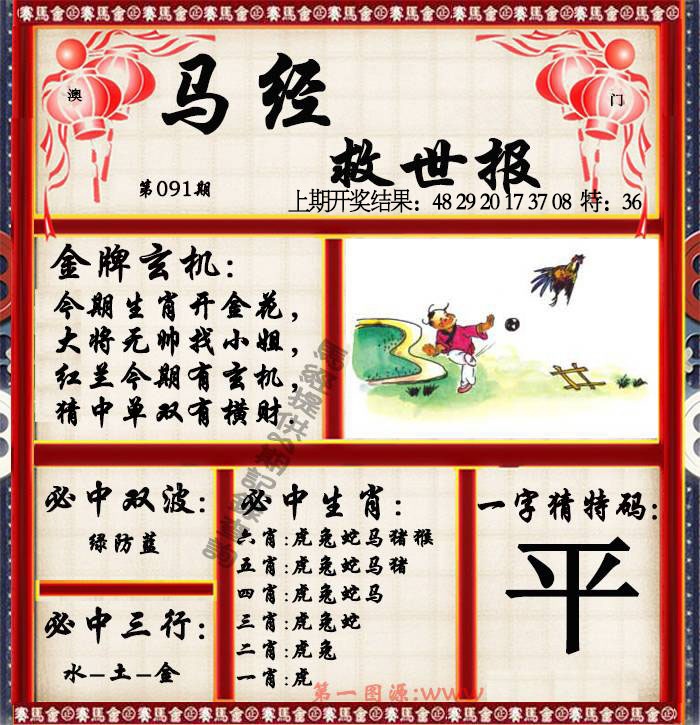 賽馬會賽馬會賽馬會賽馬會賽馬會賽馬會賽馬會
澳
门
马经
救世报
第091期
上期开奖结果：48 29 20 17 37 08 特：36
金牌玄机：
今期生肖开金花，
大将无帅找小姐，
红兰今期有玄机，
猜中单双有横财．
必中双波：
绿防蓝
必中三行：
水–土–金
必中生肖：
六肖:虎兔蛇马猪猴
五肖:虎兔蛇马猪
四肖:虎兔蛇马
三肖:虎兔蛇
二肖:虎兔
一肖:虎
一字猜特码：
平
第一图源:www